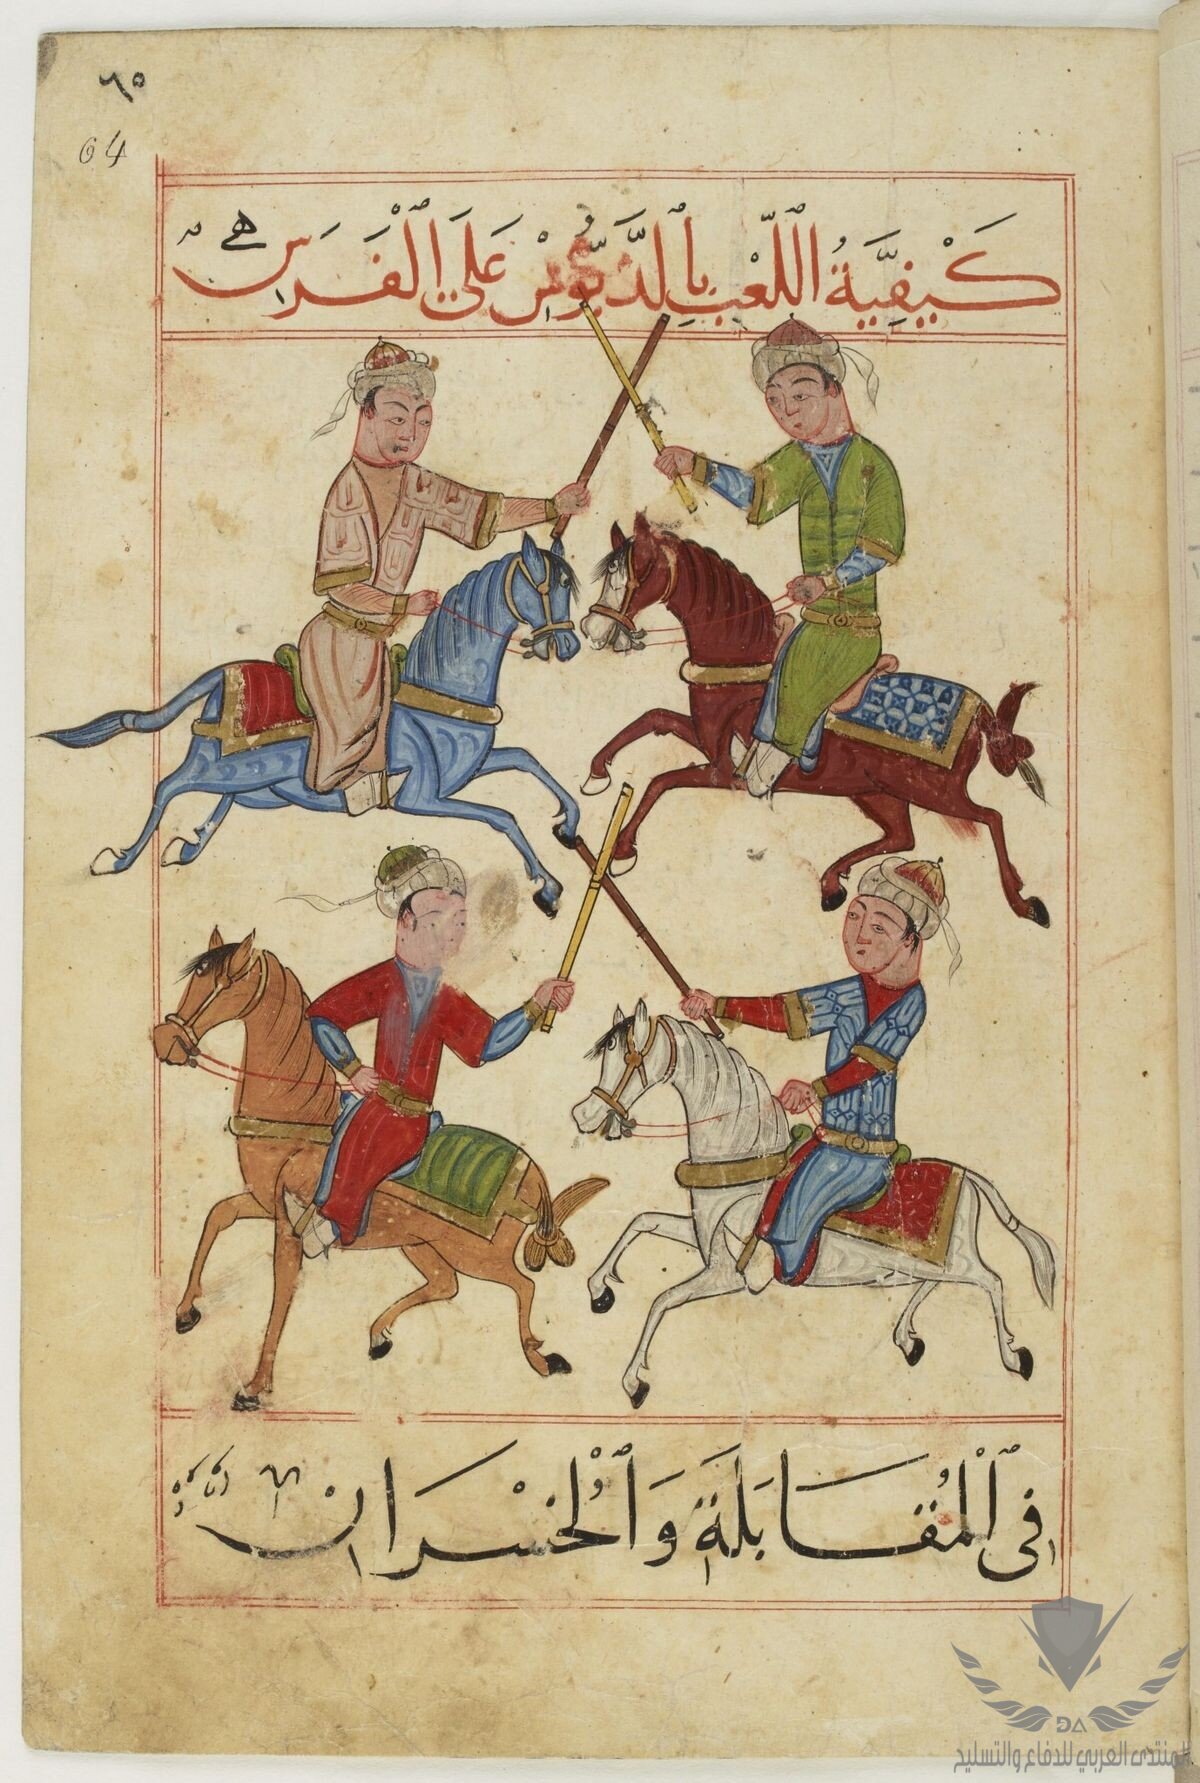 ٦٥
64
كَيْفِيَّةُ اللَّعِبِ بِالدَّبُّوسِ عَلَى الْفَرَسِ
فِى الْمُقَابَلَةِ وَالْخُسْرَانِ
المنتدى العربي للدفاع والتسليح